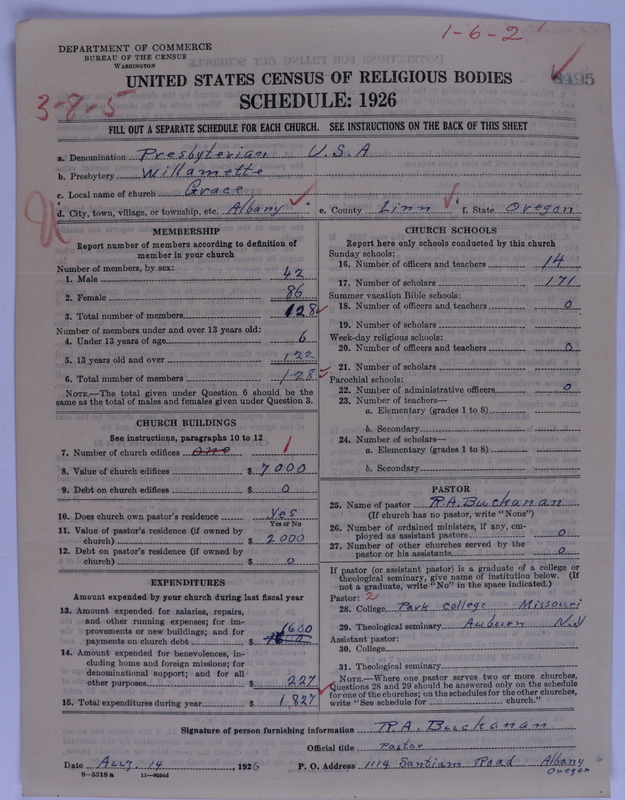 1-6-2
DEPARTMENT OF COMMERCE
BUREAU OF THE CENSUS
WASHINGTON
UNITED STATES CENSUS OF RELIGIOUS BODIES
3-8-5
SCHEDULE: 1926
FILL OUT A SEPARATE SCHEDULE FOR EACH CHURCH. SEE INSTRUCTIONS ON THE BACK OF THIS SHEET
a. Denomination Presbyterian U.S.A
b. Presbytery Willamette
c. Local name of church Grace
d. City, town, village, or township, etc. Albany e. County Linn f. State Oregon
MEMBERSHIP
Report number of members according to definition of
member in your church
Number of members, by sex:
1. Male 42
2. Female 86
3. Total number of members 128
Number of members under and over 13 years old:
4. Under 13 years of age 6
5. 13 years old and over 122
6. Total number of members 128
NOTE.—The total given under Question 6 should be the
same as the total of males and females given under Question 3.
CHURCH BUILDINGS
See instructions, paragraphs 10 to 12
7. Number of church edifices one 1
8. Value of church edifices $ 7000
9. Debt on church edifices $ 0
10. Does church own pastor's residence Yes
Yes or No
11. Value of pastor's residence (if owned by
church) $ 2000
12. Debt on pastor's residence (if owned by
church) $ 0
EXPENDITURES
Amount expended by your church during last fiscal year
13. Amount expended for salaries, repairs,
and other running expenses; for im-
provements or new buildings; and for 1600
payments on church debt $
14. Amount expended for benevolences, in-
cluding home and foreign missions; for
denominational support; and for all
other purposes $ 227
15. Total expenditures during year $ 1,827
CHURCH SCHOOLS
Report here only schools conducted by this church
Sunday schools:
16. Number of officers and teachers 14
17. Number of scholars 171
Summer vacation Bible schools:
18. Number of officers and teachers 0
19. Number of scholars
Week-day religious schools:
20. Number of officers and teachers 0
21. Number of scholars
Parochial schools:
22. Number of administrative officers 0
23. Number of teachers—
a. Elementary (grades 1 to 8)
b. Secondary
24. Number of scholars—
a. Elementary (grades 1 to 8)
b. Secondary
PASTOR
25. Name of pastor R.A. Buchanan
(If church has no pastor, write "None")
26. Number of ordained ministers, if any, em-
ployed as assistant pastors 0
27. Number of other churches served by the
pastor or his assistants 0
If pastor (or assistant pastor) is a graduate of a college or
theological seminary, give name of institution below. (If
not a graduate, write "No" in the space indicated.)
Pastor: 2
28. College Park College Missouri
29. Theological seminary Auburn N.Y
Assistant pastor:
30. College
31. Theological seminary
NOTE.—Where one pastor serves two or more churches,
Questions 28 and 29 should be answered only on the schedule
for one of the churches; on the schedules for the other churches,
write "See schedule for church."
Signature of person furnishing information R.A. Buchanan
Official title Pastor
Date Aug. 14, 1926 P. O. Address 1114 Santiam Road Albany
Oregon
8-5518a